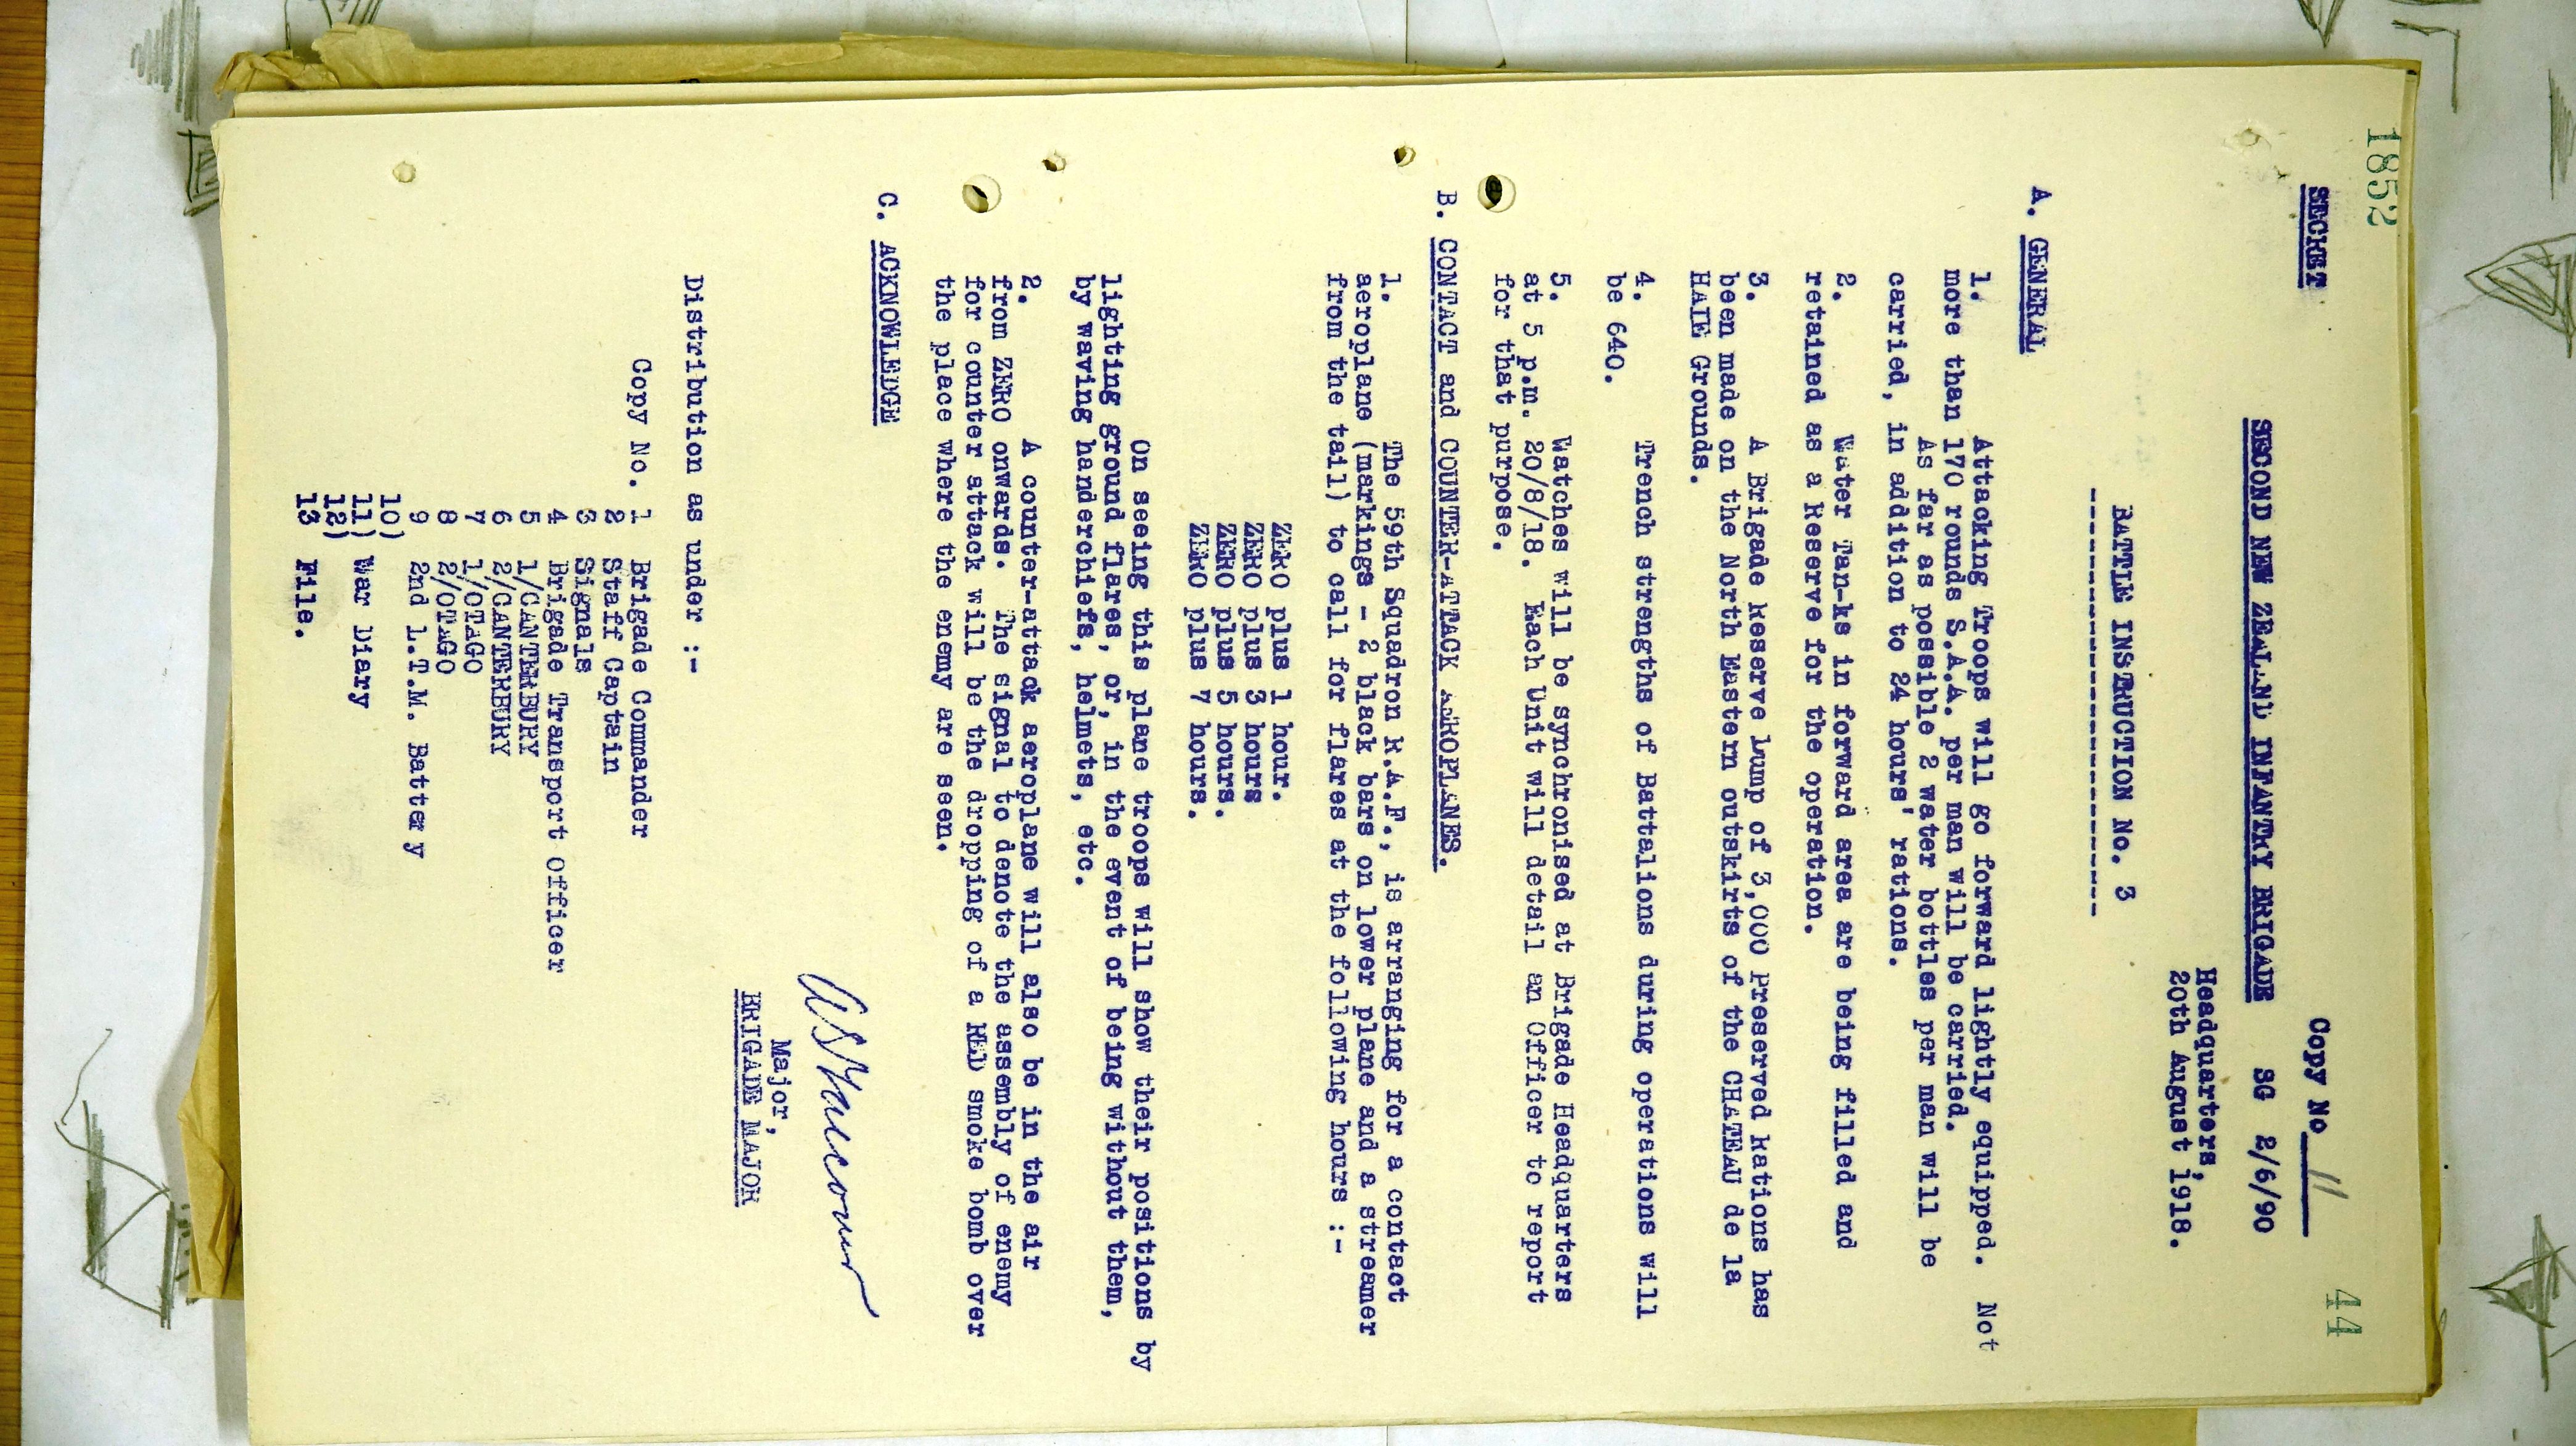 1852
44
SECRET
Copy No 11
SECOND NEW ZEALAND INFANTRY BRIGADE SG 2/6/90
Headquarters,
20th August 1918.
BATTLE INSTRUCTION No. 3
------------------------------
A. GENERAL
1. Attacking Troops will go forward lightly equipped. Not
more than 170 rounds S.A.A. per man will be carried.
As far as possible 2 water bottles per man will be
carried, in addition to 24 hours' rations.
2. Water Tan-ks in forward area are being filled and
retained as a Reserve for the operation.
3. A Brigade Reserve Dump of 3,000 Preserved Rations has
been made on the North Eastern outskirts of the CHATEAU de la
HAIE Grounds.
4. Trench strengths of Battalions during operations will
be 640.
5. Watches will be synchronised at Brigade Headquarters
at 5 p.m. 20/8/18. Each Unit will detail an Officer to report
for that purpose.
B. CONTACT and COUNTER-ATTACK AEROPLANES.
1. The 59th Squadron R.A.F., is arranging for a contact
aeroplane (markings - 2 black bars on lower plane and a streamer
from the tail) to call for flares at the following hours :-
ZERO plus 1 hour.
ZERO plus 3 hours
ZERO plus 5 hours.
ZERO plus 7 hours.
On seeing this plane troops will show their positions by
lighting ground flares, or, in the event of being without them,
by waving handerchiefs, helmets, etc.
2. A counter-attack aeroplane will also be in the air
from ZERO onwards. The signal to denote the assembly of enemy
for counter attack will be the dropping of a RED smoke bomb over
the place where the enemy are seen.
C. ACKNOWLEDGE
Major,
BRIGADE MAJOR
Distribution as under :-
Copy No. 1 Brigade Commander
2 Staff Captain
3 Signals
4 Brigade Transport Officer
5 1/CANTERBURY
6 2/CANTERBURY
7 1/OTAGO
8 2/OTAGO
9 2nd L.T.M. Battery
10)
11) War Diary
12)
13 File.